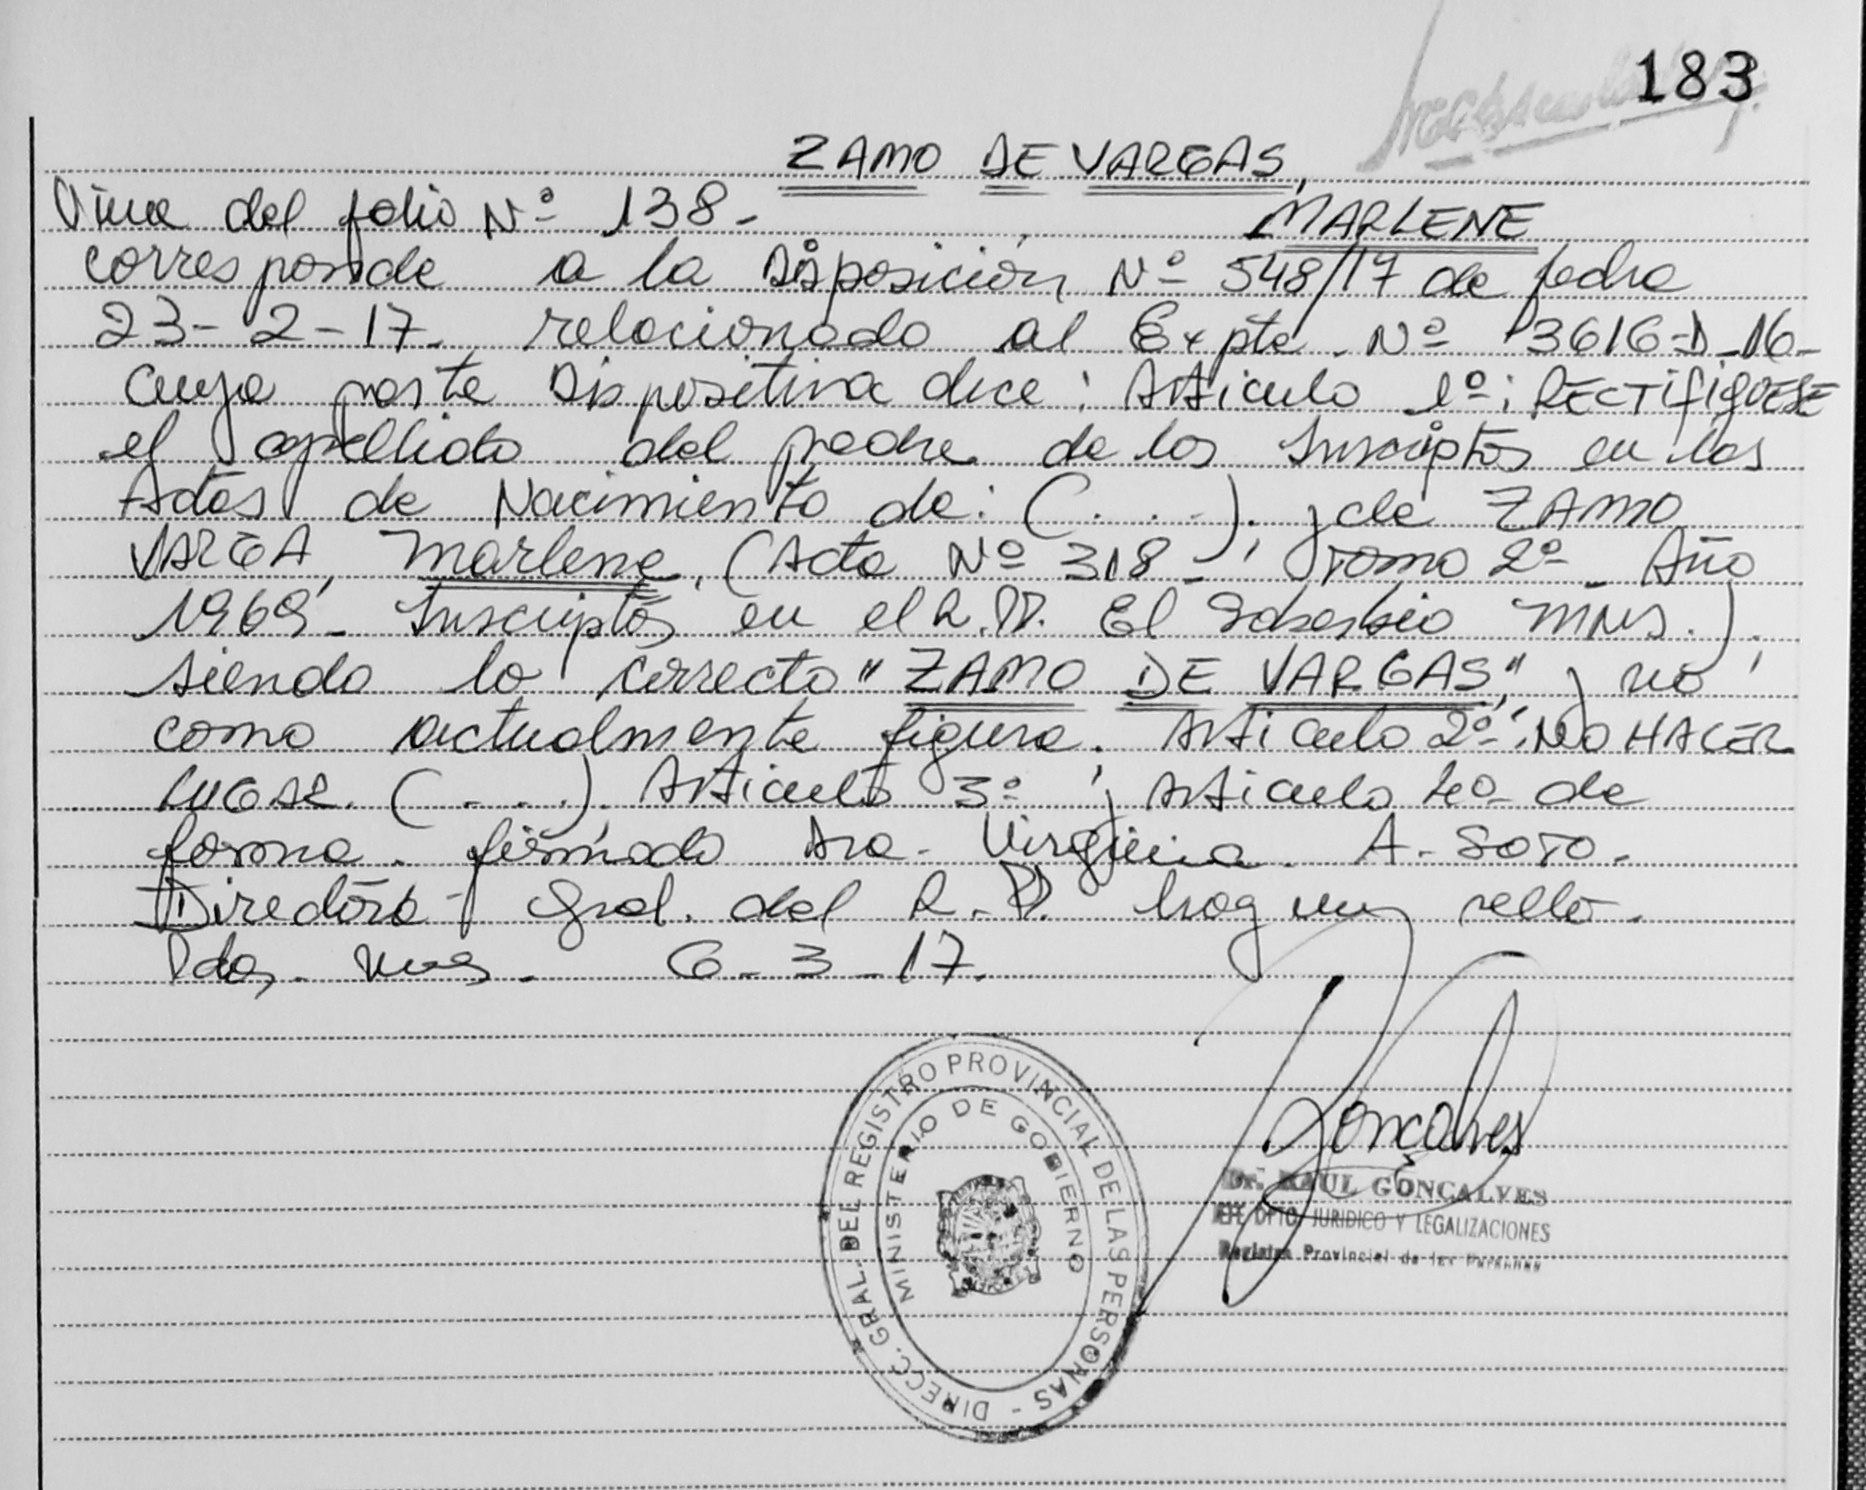 183
ZAMO DE VARGAS,
Viene del folio Nº 138-
MARLENE
corresponde a la Disposición Nº 548/17 de fecha
23-2-17. relacionado al Expte. Nº 3616-D-16-
cuya parte Dispositiva dice: Articulo 1º: RECTIFIQUESE
el apellido del padre de los Inscriptos en las
Actas de Nacimiento de: (...). y de ZAMO
VARGA, Marlene, (Acta Nº 318-, Tomo 2º- Año
1969- Inscriptos en el R.P. El Soberbio Mnes.).
siendo lo correcto "ZAMO DE VARGAS", y no
como actualmente figura. Articulo 2º: NO HACER
LUGAR. (...). Articulo 3º y Articulo 4º de
forma. firmado Dra. Virginia. A. SOTO.
Directora Gral. del R.P. hay un sello.
Pdas. Mnes. 6-3-17.
DIRECC. GRAL. DEL REGISTRO PROVINCIAL DE LAS PERSONAS -
MINISTERIO DE GOBIERNO
Gonçalves
Dr. RAUL GONÇALVES
JEFE DPTO. JURIDICO Y LEGALIZACIONES
Registro Provincial de las Personas